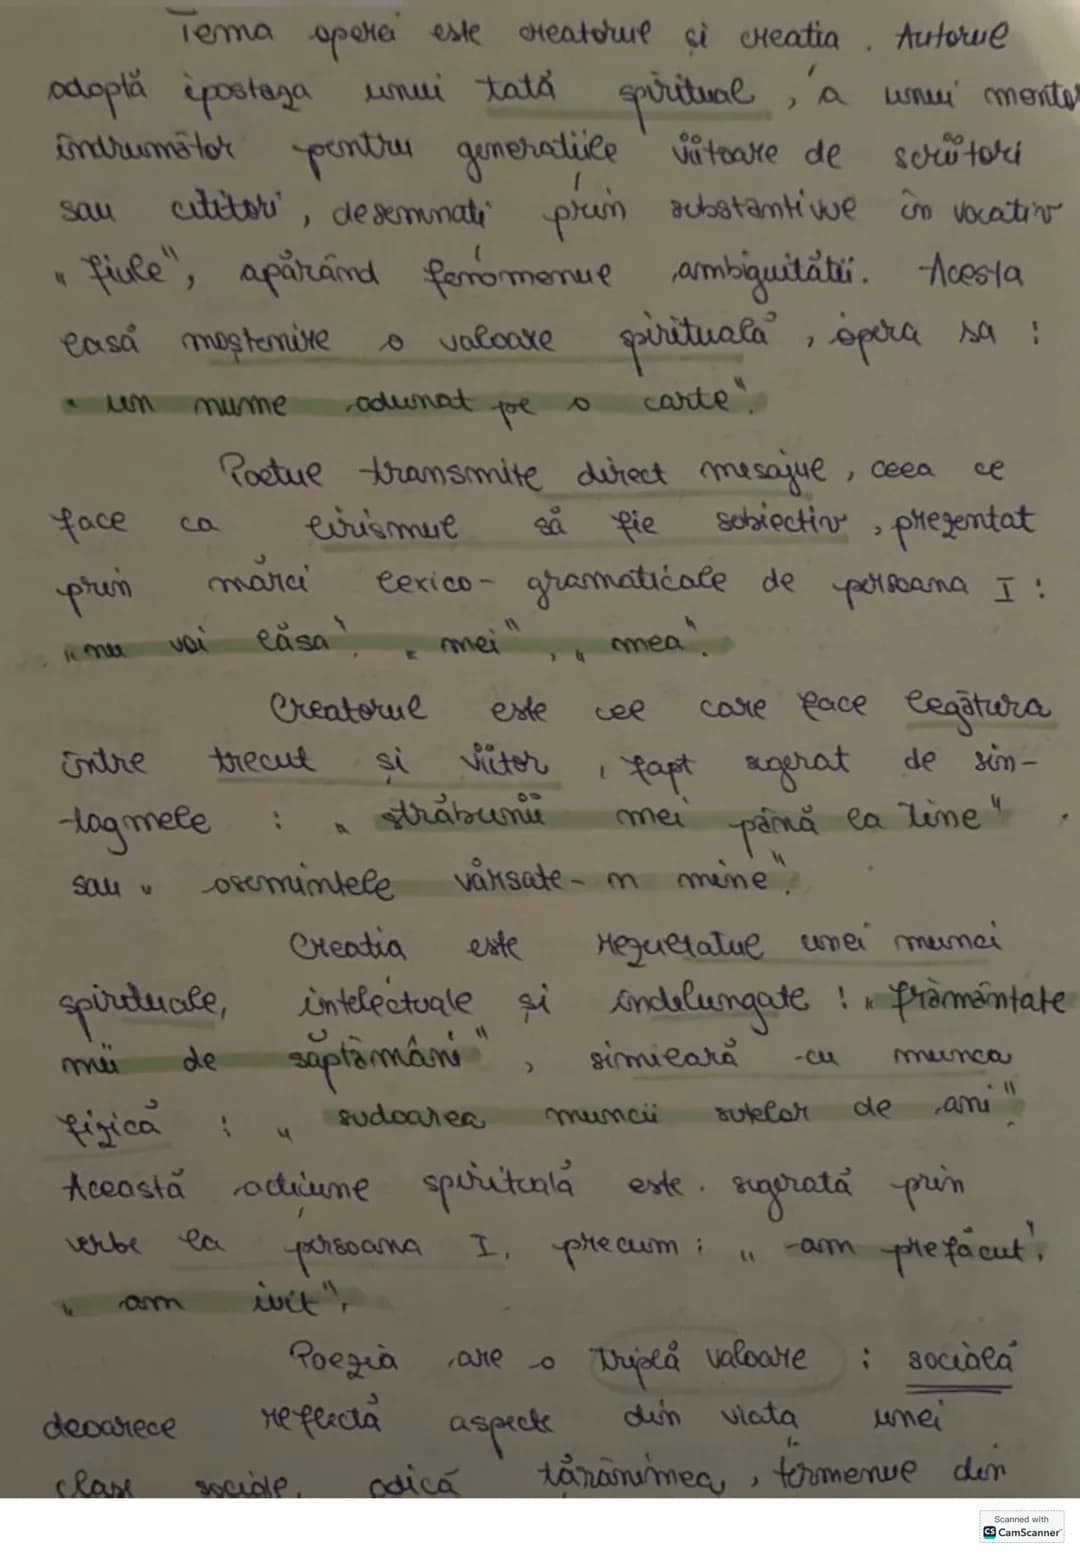 Tema operei este creatorul și creatia. Autorul
adoptă ipostaza unui tată spiritual, a unui mentor
îndrumător pentru generatiile viitoare de scriitori
sau cititori, desemnati prin substantivul în vocativ
„fiule", apărând fenomenul ambiguitătii. Acesta
lasă moștenire o valoare spirituală, opera sa :
„un nume adunat pe o carte".
Poetul transmite direct mesajul, ceea ce
face ca lirismul să fie subiectiv, prezentat
prin mărci lexico-gramaticale de persoana I :
„nu voi lăsa", „mei", „mea".
Creatorul este cel care face legătura
între trecut și viitor, fapt sugerat de sin-
-tagmele : „străbunii mei până la tine"
sau „osemintele vărsate-n mine".
Creatia este rezultatul unei munci
spirituale, intelectuale și îndelungate : „frământate
mii de săptămâni", similară cu munca
fizică : „sudoarea muncii sutelor de ani"
Această actiune spirituală este sugerată prin
verbe la persoana I, precum : „am prefăcut",
„am ivit",
Poezia are o triplă valoare : socială
deoarece reflectă aspecte din viata unei
clase sociale, adică tărănimea, termenul din
Scanned with
CS CamScanner